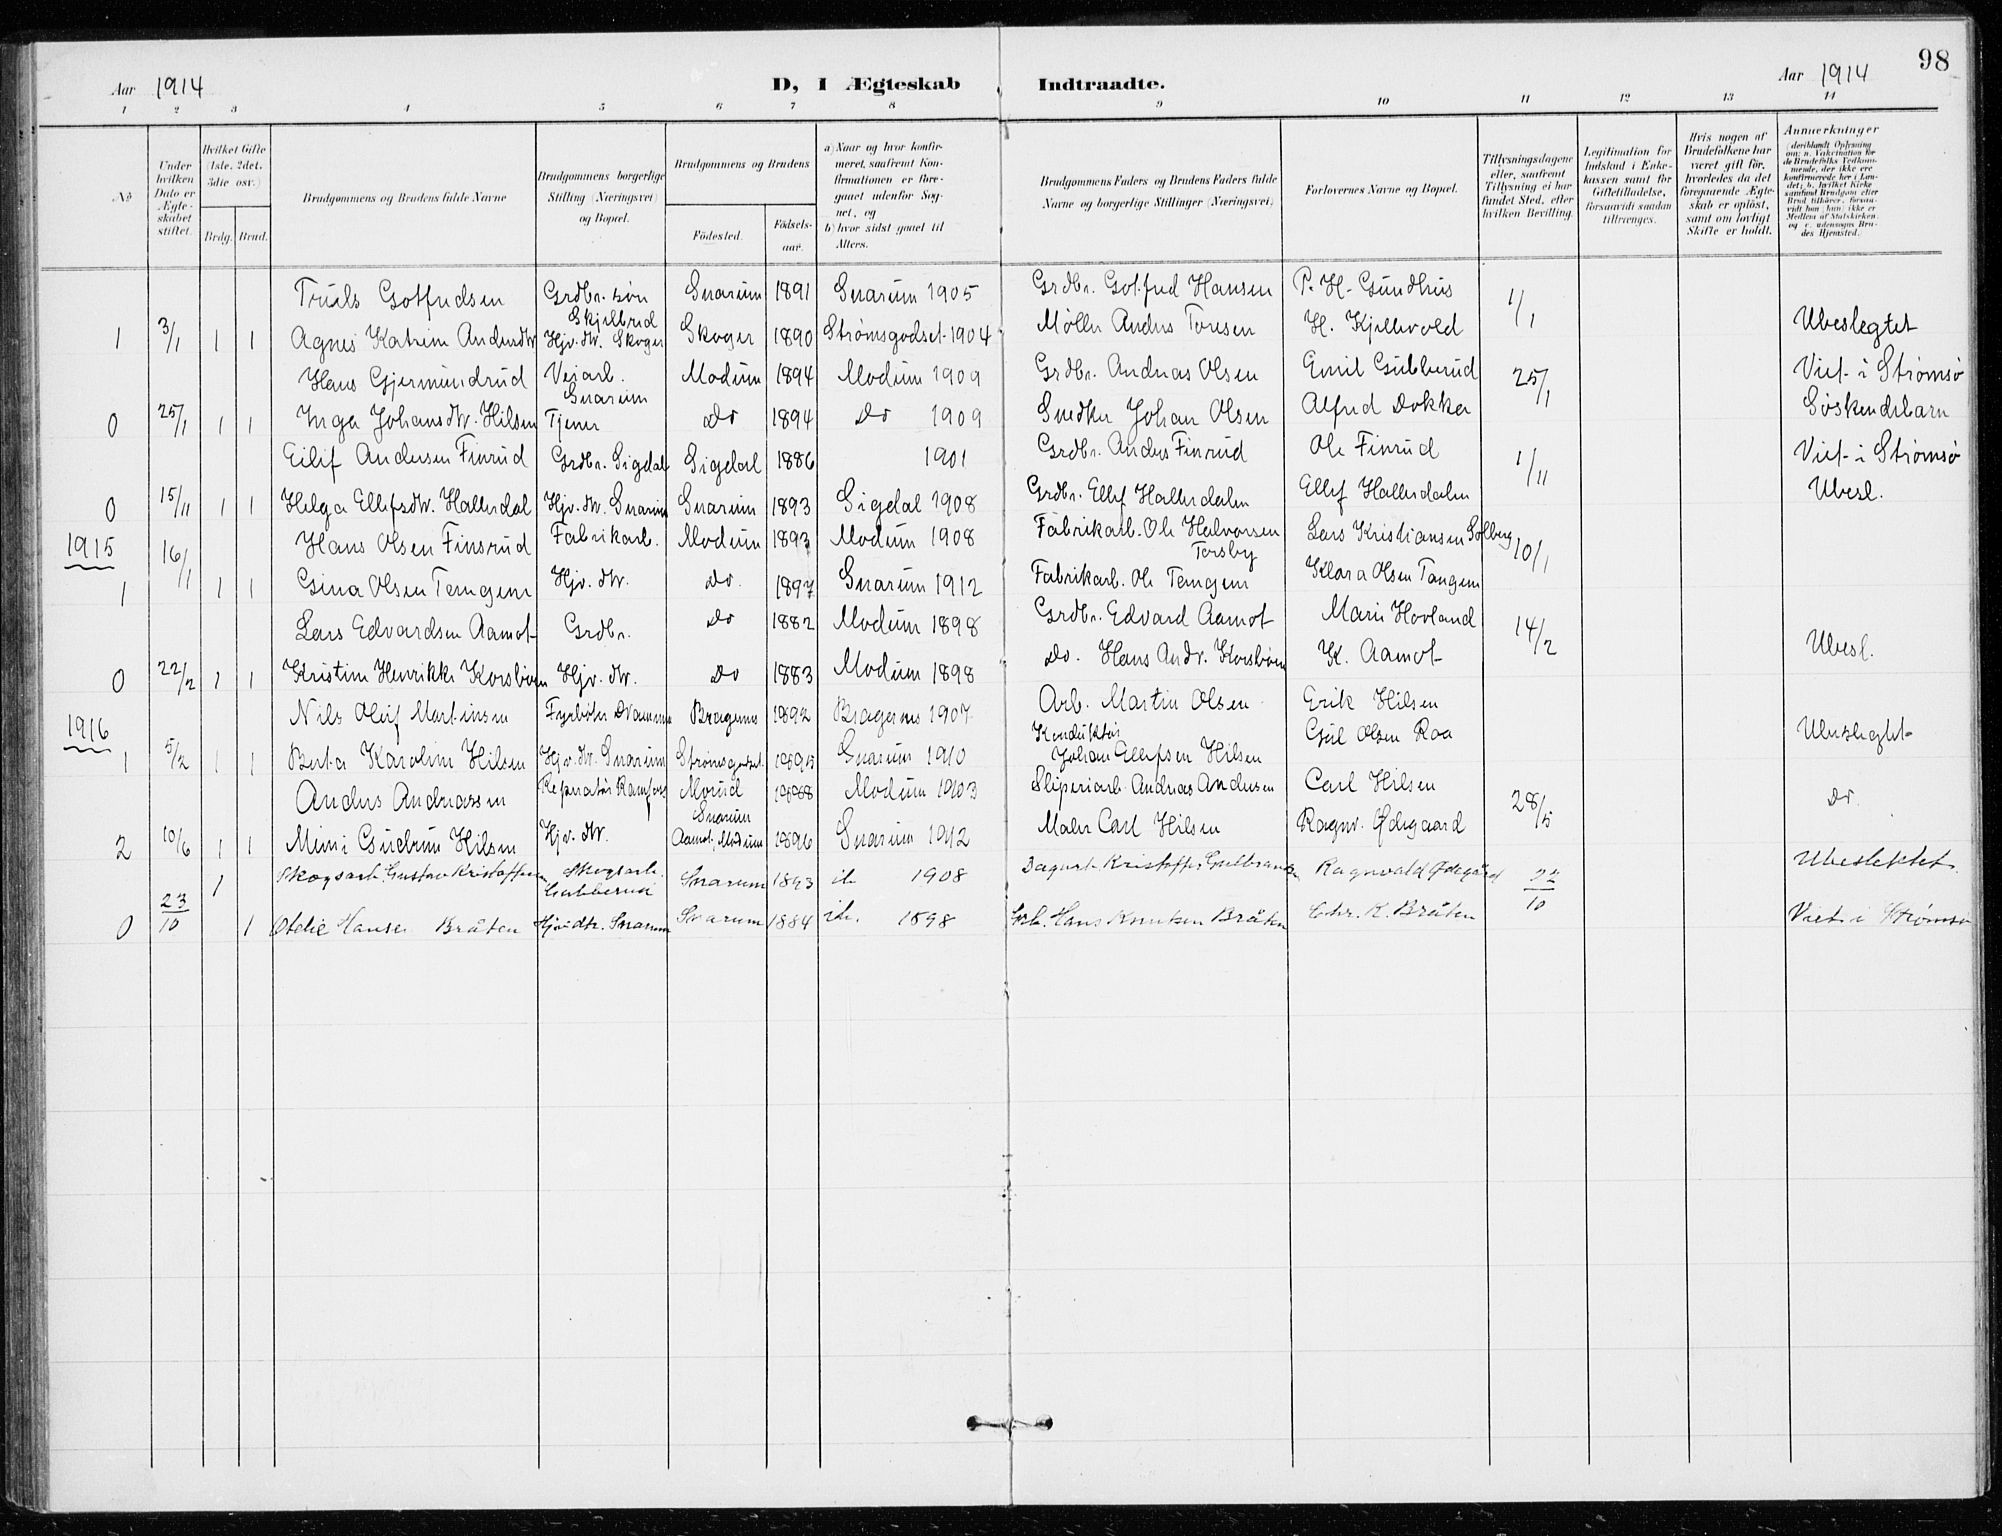 98
Aar 1914 D, I Ægteskab Indtraadte. Aar 1914
1 2 3 4 5 6 7 8 9 10 11 12 13 14
No
Under hvilken Dato er Ægteskabet stiftet.
Hvilket Gifte (1ste, 2det, 3die osv.)
Brdg. Brud.
Brudgommens og Brudens fulde Navne
Brudgommens borgerlige Stilling (Næringsvei) og Bopæl.
Brudgommens og Brudens
Födested. Födsels-aar.
a) Naar og hvor konfirmeret, saafremt Konfirmationen er foregaaet udenfor Sognet, og
b) hvor sidst gaaet til Alters.
Brudgommens Faders og Brudens Faders fulde Navne og borgerlige Stillinger (Næringsvei)
Forlovernes Navne og Bopæl.
Tillysningsdagene eller, saafremt Tillysning ei har fundet Sted, efter hvilken Bevilling.
Legitimation for Indskud i Enkekassen samt for Giftetilladelse, forsaavidt saadan tiltrænges.
Hvis nogen af Brudefolkene har været gift för, hvorledes da det foregaaende Ægteskab er oplöst, samt om lovligt Skifte er holdt.
Anmerkninger
Truls Gotfredsen Grdbr. søn Skjelbred Snarum 1891 Snarum 1905 Grdbr. Gotfred Hansen P. H. Gundhus 1/1
1 3/1 1 1 Agnes Katrine Andersdtr Hjv. dtr. Skoger Skoger 1890 Strømsgodset 1904 Møller Anders Toresen H. Kjellevold Ubeslegtet
Hans Gjermundrud Veiarb. Snarum Modum 1894 Modum 1909 Grdbr. Andreas Olsen Emil Gubberud 25/1 Viet i Strømsø
0 25/1 1 1 Inga Johansdtr. Hilsen Tjener Do 1894 Do 1909 Snedker Johan Olsen Alfred Dokka Søskendebarn
Eilif Andersen Finrud Grdbr. Sigdal Sigdal 1886 1901 Grdbr. Anders Finrud Ole Finrud 1/11 Viet i Strømsø
0 15/11 1 1 Helga Ellefsdtr. Hallerdal Hjv. dtr. Snarum Snarum 1893 Sigdal 1908 Grdbr. Ellef Hallerdalen Ellef Hallerdalen Ubesl.
1915 16/1 Hans Olsen Finsrud Fabrikarb. Modum 1893 Modum 1908 Fabrikarb. Ole Halvorsen Torsby Lars Kristiansen Solberg 10/1
1 1 1 Gina Olsen Tangen Hjv. dtr. Do. 1897 Snarum 1912 Fabrikarb. Ole Tangen Klara Olsen Tangen
Lars Edvardsen Aamot Grdbr. Do 1882 Modum 1898 Grdbr. Edvard Aamot Marie Hovland 14/2
0 22/2 1 1 Kristine Henrikke Korsbøen Hjv. dtr. Do 1883 Modum 1898 Do. Hans Andr. Korsbøen K. Aamot Ubesl.
1916 Nils Oluf Martinsen Fyrbøter Drammen Bragernes 1892 Bragernes 1907 Arb. Martin Olsen Erik Hilsen
1 5/2 1 1 Berta Karoline Hilsen Hjv. dtr. Snarum Strømsgodset 1895 Snarum 1910 Konduktør Johan Ellefsen Hilsen Gul Olsen Roa Ubeslegtet
Anders Andreassen Reperatør Ramfoss Modum 1888 Modum 1903 Sliperiarb. Andreas Andersen Carl Hilsen 28/5 Do.
2 10/6 1 1 Mimi Gudrun Hilsen Hjv. dtr. Snarum Aamot, Modum 1896 Snarum 1912 Maler Carl Hilsen Ragnv. Ødegaard
Skogsarb. Gustav Kristoffersen Skogsarb. Gubberud Snarum 1893 ib 1908 Kristoffer Gulbrandsen Ragnvald Ødegård 22/10 Ubeslektet.
0 23/10 1 Otelie Hanse Bråten Hjv. dtr. Snarum Snarum 1884 ib. 1898 Hans Knutsen Bråten Chr. K. Bråten Viet i Strømsø